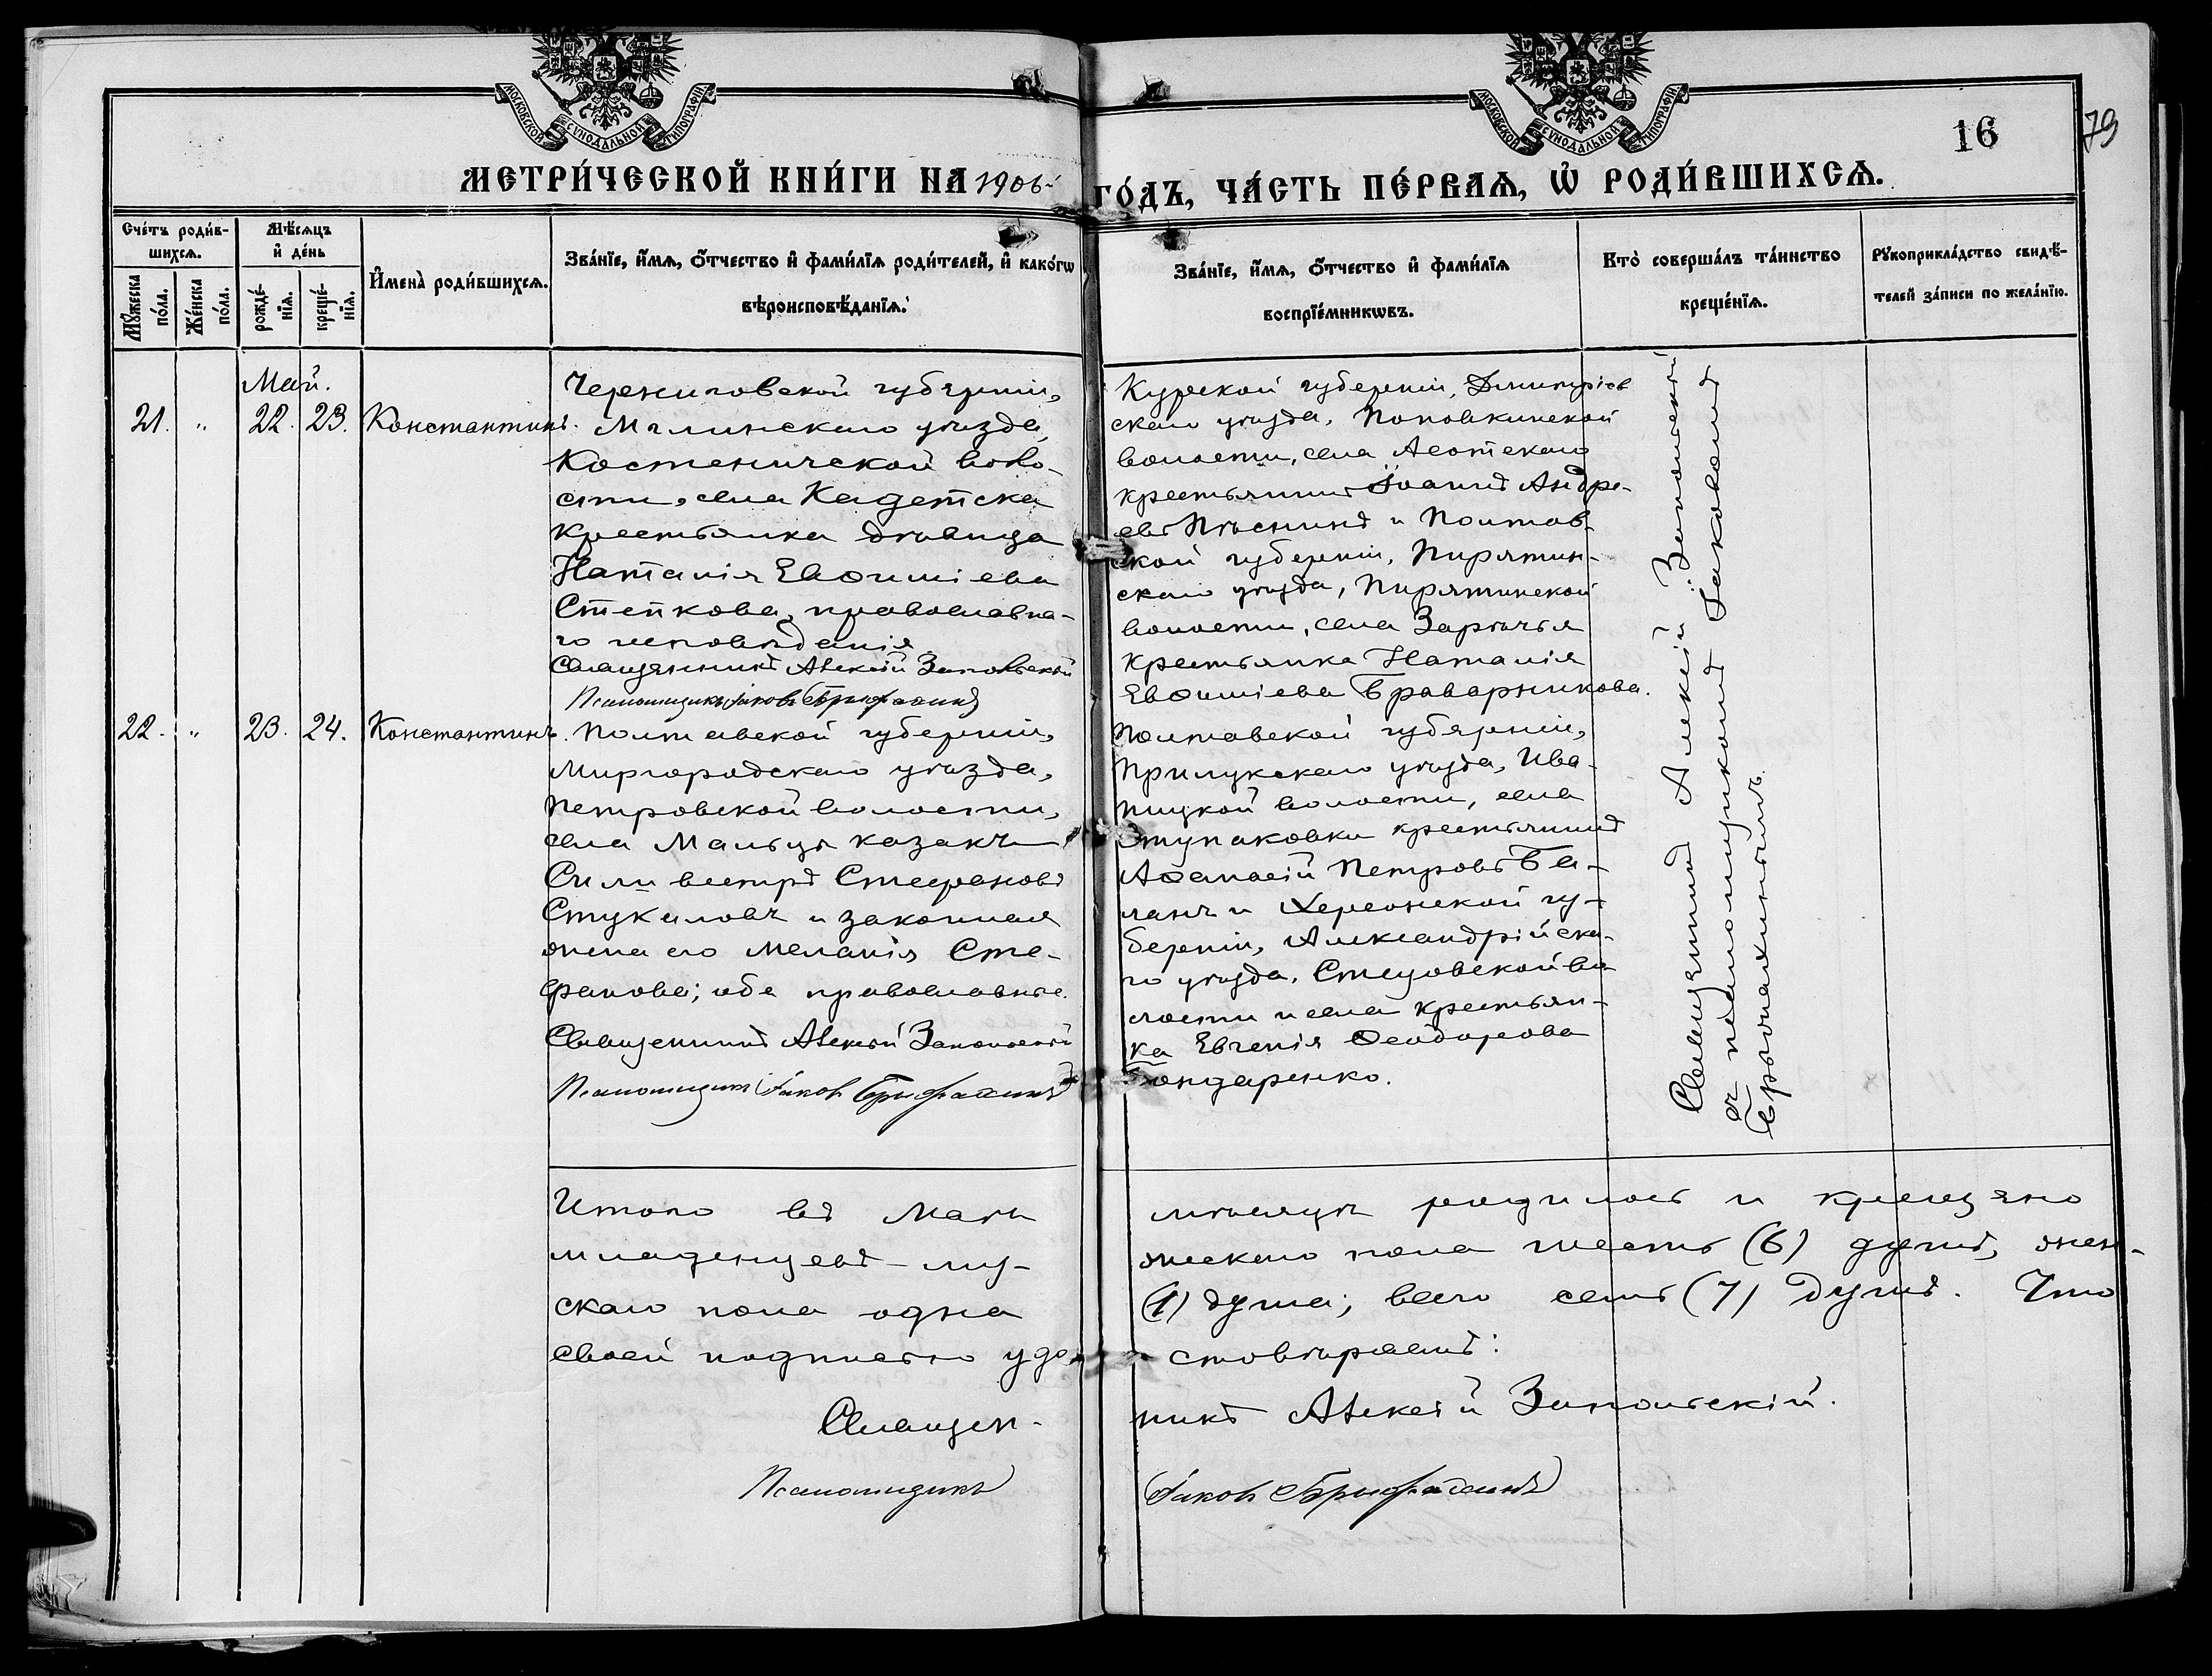 МОСКОВСКОЙ СУНОДАЛЬНОЙ ТИПОГРАФІИ
МОСКОВСКОЙ СУНОДАЛЬНОЙ ТИПОГРАФІИ
16
79
МЕТРИ́ЧЕСКОЙ КНИ́ГИ НА 1906 ГО́ДЪ, ЧА́СТЬ ПЕ́РВАЯ, Ѡ РОДИ́ВШИХСЯ.
Сче́тъ роди́в-
шихся.
Мꙋ́жеска по́ла.
Же́нска по́ла.
Мѣ́сяцъ
и де́нь
рожде́-
нїя.
креще́-
нїя.
Имена̀ роди́вшихся.
Зва́нїе, и́мя, о́тчество и фами́лїя роди́телей, и како́гѡ
вѣроисповѣ́данїя.
Зва́нїе, и́мя, о́тчество и фами́лїя
воспрїе́мникѡвъ.
Кто̀ соверша́лъ та́инство
креще́нїя.
Рꙋкоприкла́дство свидѣ́-
телей за́писи по жела́нїю.
Май.
21. " 22. 23. Константинъ.
Черниговской губерніи,
Мглинскаго уѣзда,
Костеничской воло-
сти, села Кадетска
крестьянка дѣвица
Наталія Евѳиміева
Степкова, православна-
го исповѣданія
Священникъ Алексій Запольскій
Псаломщикъ Іаковъ
Курской губерніи, Димитріев
скаго уѣзда, Поповкинской
волости, села
крестьянинъ Іоаннъ Андре-
евъ Пѣснинъ и Полтав-
ской губерніи, Пирятин-
скаго уѣзда, Пирятинской
волости, села Зарѣчья
крестьянка Наталія
Евѳиміева Браварникова.
22. " 23. 24. Константинъ.
Полтавской губерніи,
Миргородскаго уѣзда,
Петровской волости,
села Мальцы казакъ
Сильвестръ Стефановъ
Стукаловъ и законная
жена его Меланія Сте-
фанова; оба православные.
Священникъ Алексій Запольскій
Псаломщикъ Іаковъ
Полтавской губерніи,
Прилукскаго уѣзда, Ива-
ницкой волости, села
Ступаковки крестьянинъ
Аѳанасій Петровъ Ба-
ланъ и Херсонской гу-
берніи, Александрійска-
го уѣзда, Стецовской во
лости и села крестьян-
ка Евгенія Ѳеодорова
Бондаренко.
Священникъ Алексій Запольскій
съ псаломщикомъ Іаковомъ
Итого въ Маѣ мѣсяцѣ родилось и крещено
младенцевъ - му- жескаго пола шесть (6) душъ, жен-
скаго пола одна (1) душа; всего семь (7) душъ. Что
своей подписью удо- стовѣряемъ:
Священ- никъ Алексій Запольскій.
Псаломщикъ Іаковъ